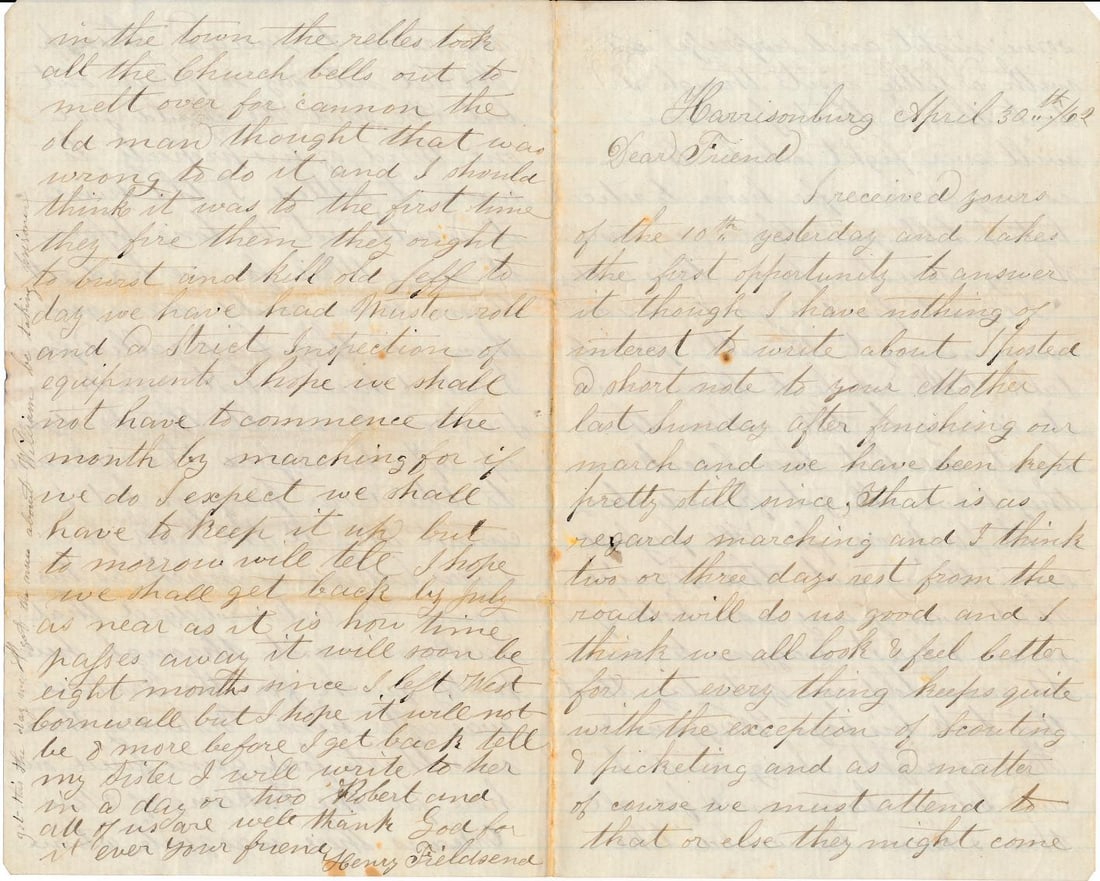 Harrisonburg April 30th/62
Dear Friend
I received yours
of the 10th yesterday and takes
the first opportunity to answer
it though I have nothing of
interest to write about I posted
a short note to your Mother
last Sunday after finishing our
march and we have been kept
pretty still since. That is as
regards marching and I think
two or three days rest from the
roads will do us good and I
think we all look & feel better
for it every thing keeps quite
with the exception of Scouting
& picketing and as a matter
of course we must attend to
that or else they might come
in the town the rebles took
all the Church bells out to
melt over for cannon the
old man thought that was
wrong to do it and I should
think it was to the first time
they fire them they ought
to burst and kill old Jeff to
day we have had Muster roll
and a Strict Inspection of
equipments I hope we shall
not have to commence the
month by marching for if
we do I expect we shall
have to keep it up but
to morrow will tell I hope
we shall get back by July
as near as it is how time
passes away it will soon be
eight months since I left West
Cornwall but I hope it will not
be 8 more before I get back tell
my Sister I will write to her
in a day or two Robert and
all of us are well thank God for
it ever your friend
Henry Fieldsend
the day we the news about William being taken prisoner